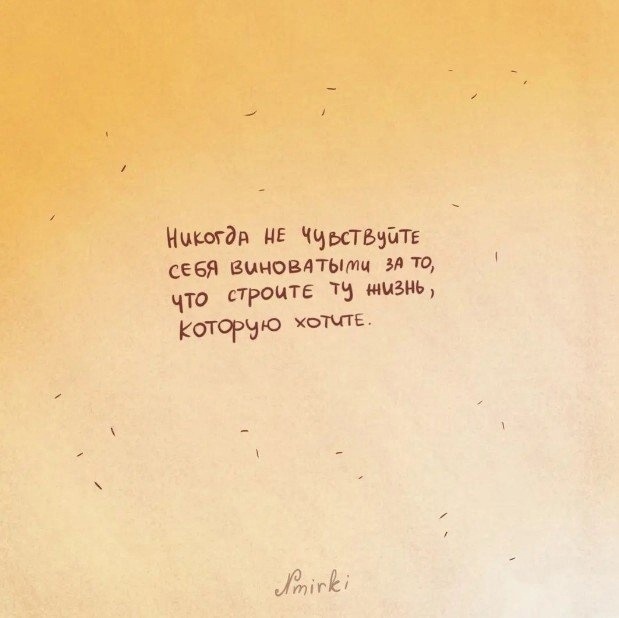 Никогда не чувствуйте
себя виноватыми за то,
что строите ту жизнь,
которую хотите.
Nmirki